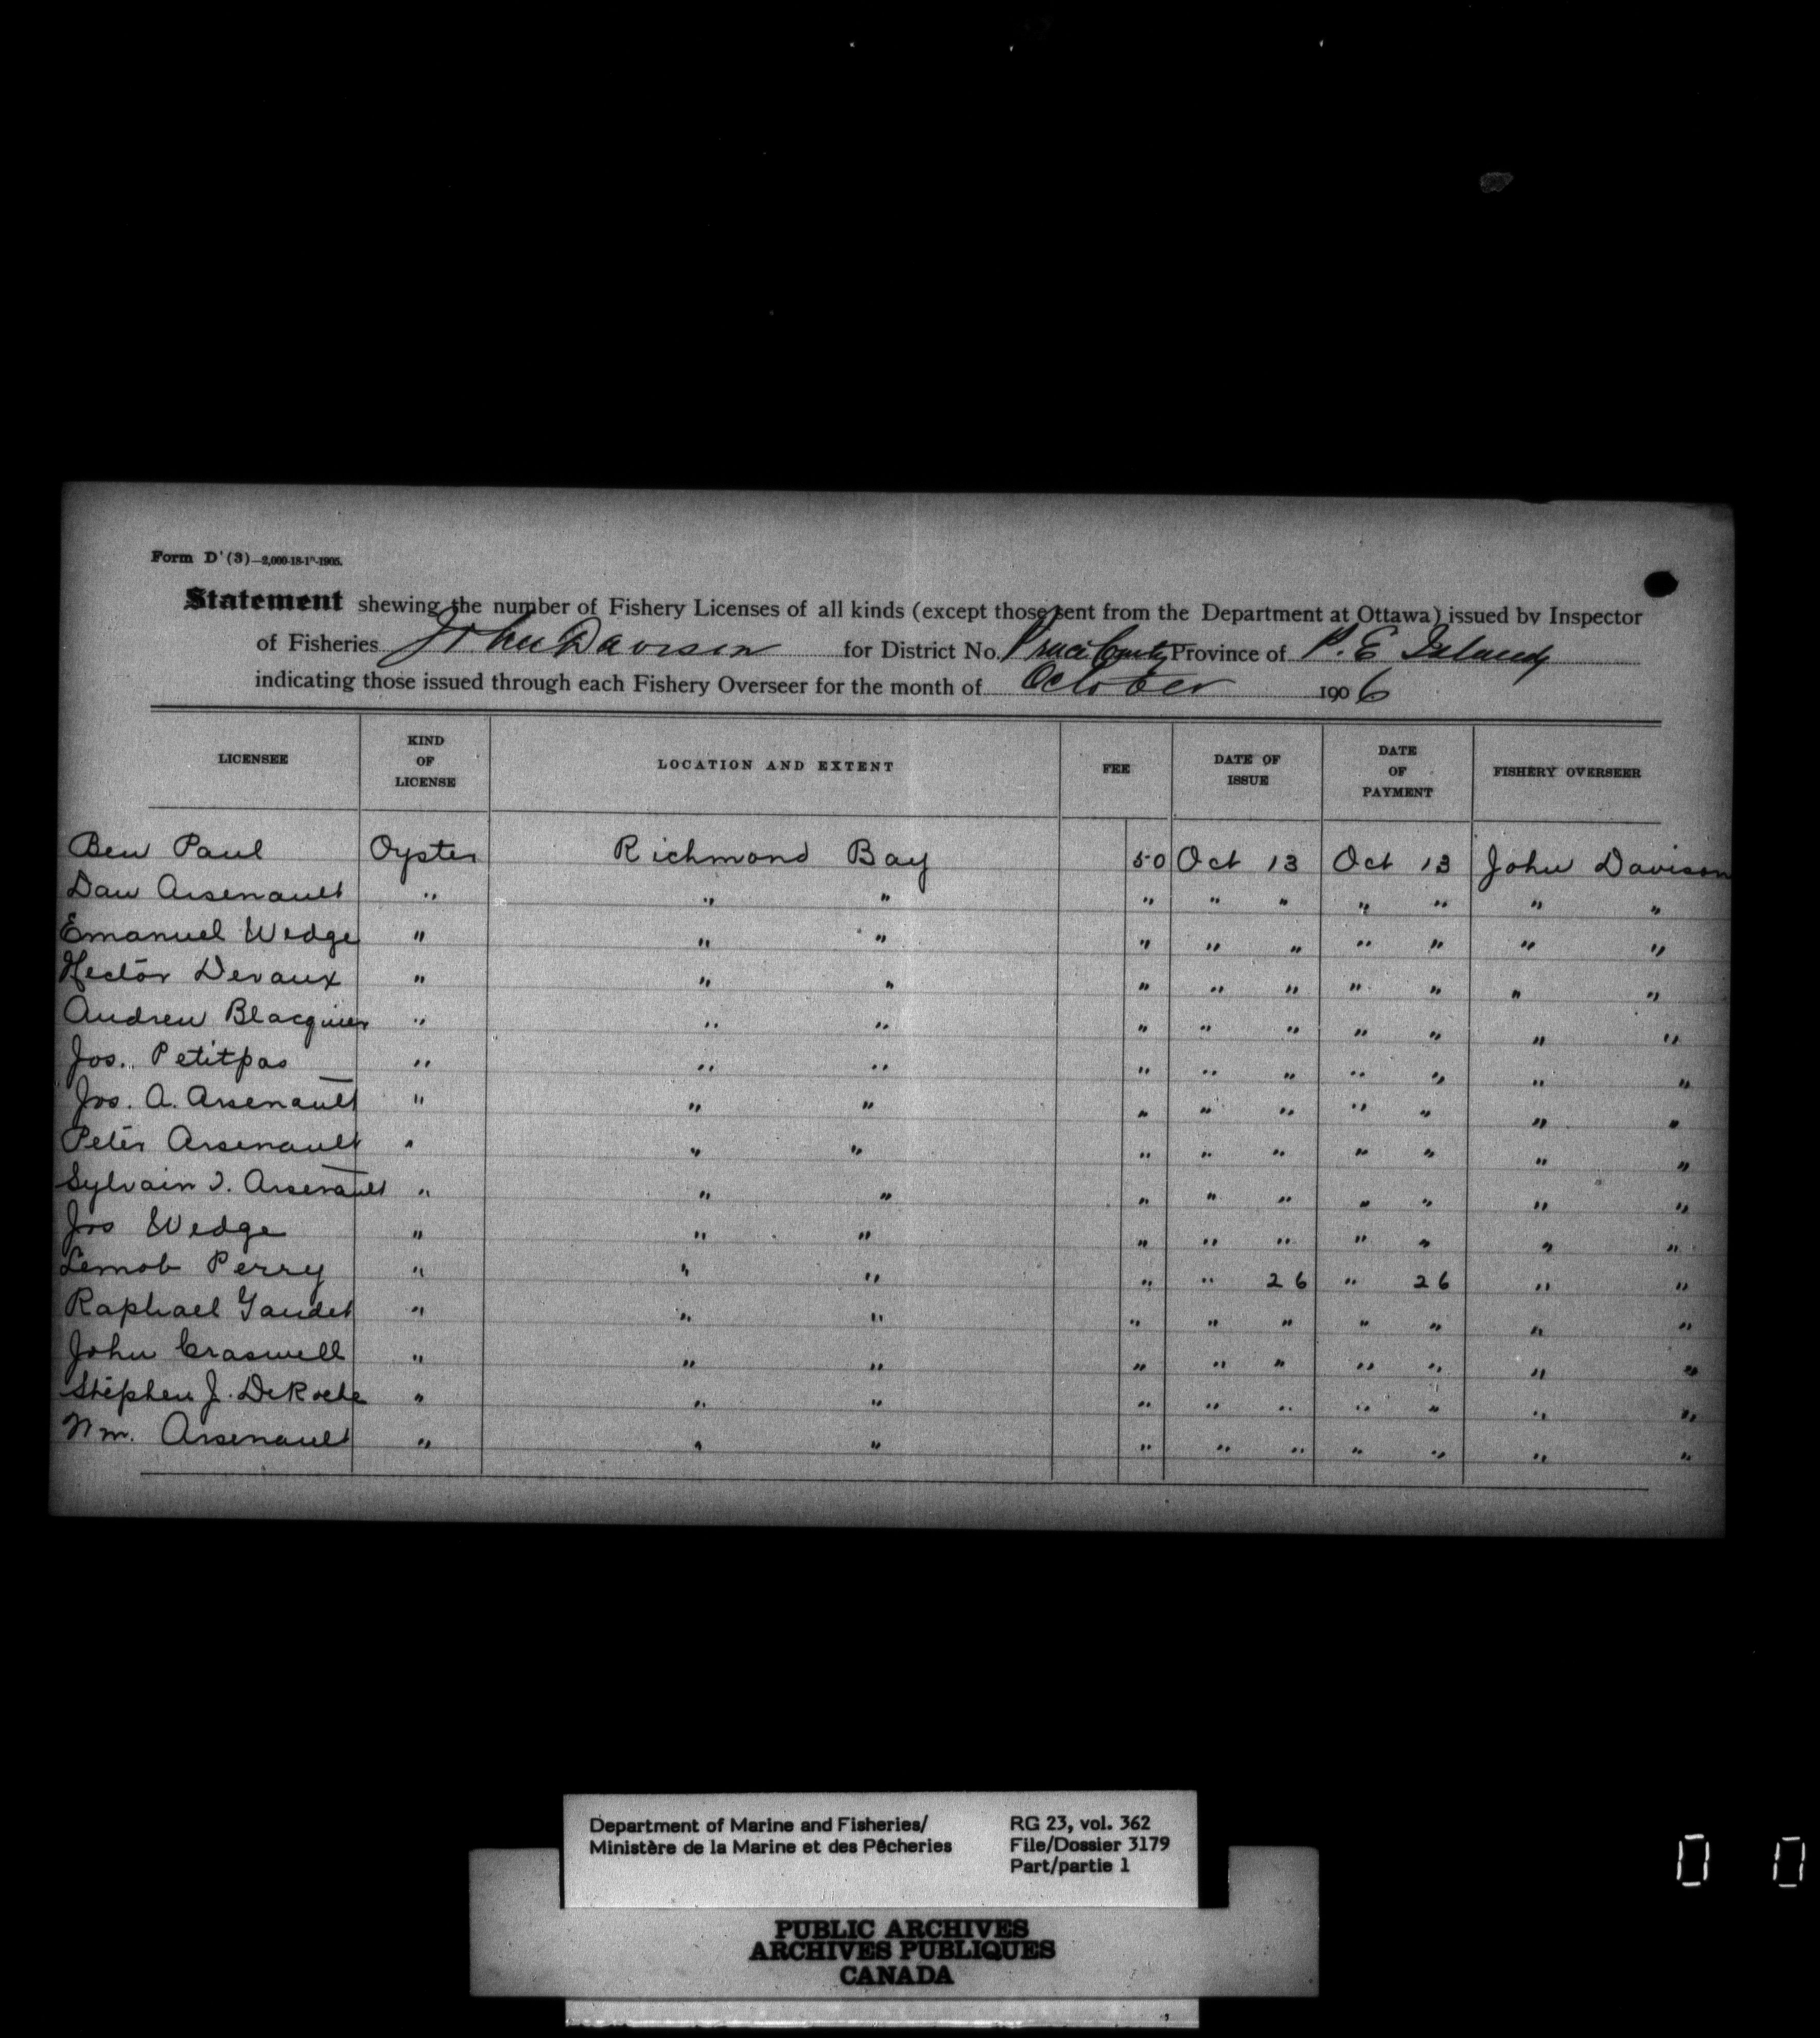 Form D'(3)—2,000-18-1"-1905.
Statement shewing the number of Fishery Licenses of all kinds (except those sent from the Department at Ottawa) issued by Inspector
of Fisheries John Davison for District No. Province of P. E Island
indicating those issued through each Fishery Overseer for the month of October 1906
LICENSEE KIND OF LICENSE LOCATION AND EXTENT FEE DATE OF ISSUE DATE OF PAYMENT FISHERY OVERSEER
Ben Paul Oyster Richmond Bay 50 Oct 13 Oct 13 John Davison
Dan Arsenault " " " " " " " " " "
Emanuel Wedge " " " " " " " " " "
Hector Devaux " " " " " " " " " "
Andrew Blacquier " " " " " " " " " "
Jos. Petitpas " " " " " " " " " "
Jos. A. Arsenault " " " " " " " " " "
Peter Arsenault " " " " " " " " " "
Sylvain J. Arsenault " " " " " " " " " "
Jos Wedge " " " " " " " " " "
Lemob Perry " " " " " 26 " 26 " "
Raphael Gaudet " " " " " " " " " "
John Craswell " " " " " " " " " "
Stephen J. DeRoche " " " " " " " " " "
Wm. Arsenault " " " " " " " " " "
Department of Marine and Fisheries/ RG 23, vol. 362
Ministère de la Marine et des Pêcheries File/Dossier 3179
Part/partie 1
PUBLIC ARCHIVES
ARCHIVES PUBLIQUES
CANADA
0 0